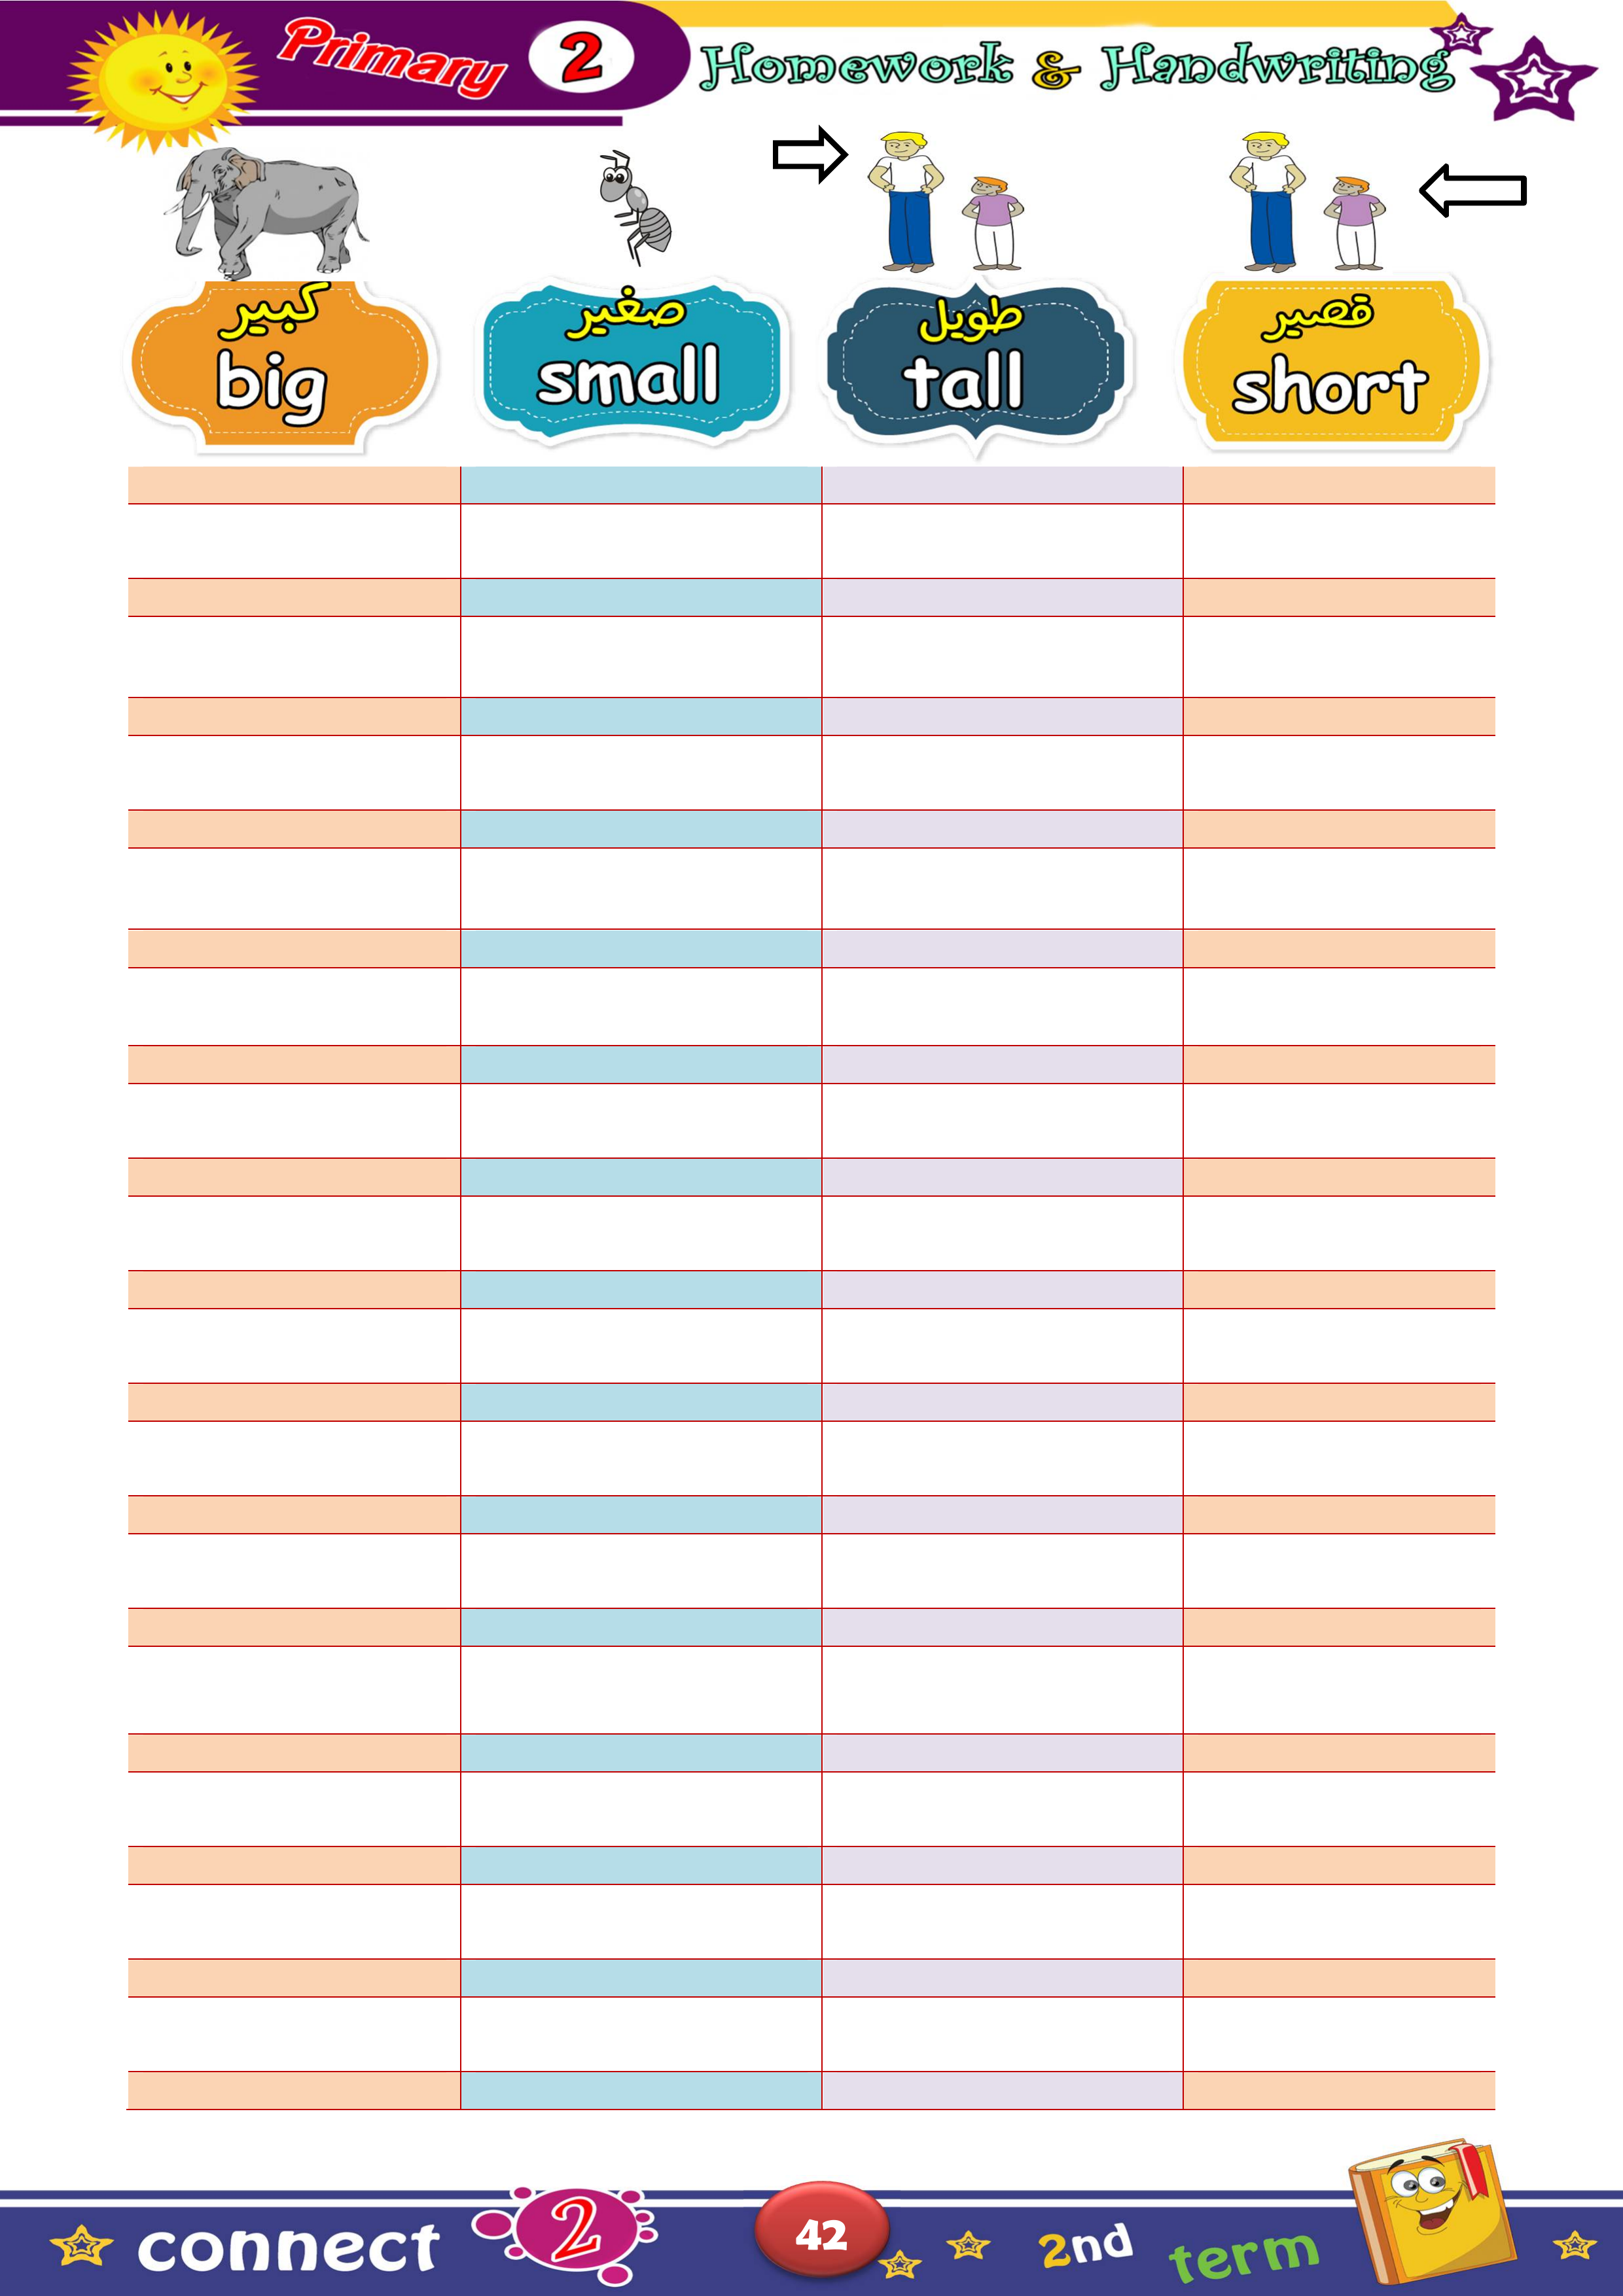 Primary 2 Homework & Handwriting
كبير
big
صغير
small
طويل
tall
قصير
short
connect 2 42 2nd term